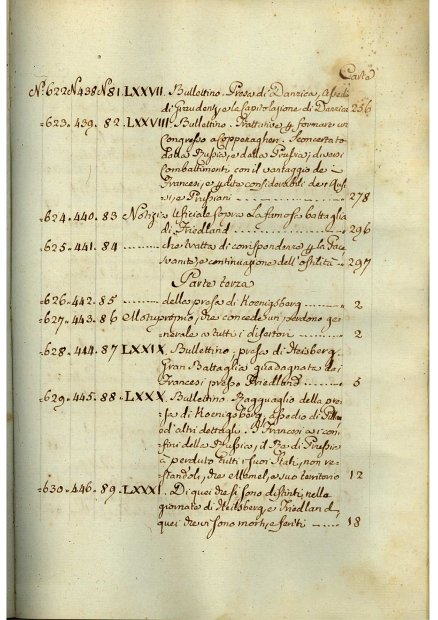 Carte
N.º 622 N. 438 N. 81. LXXVII. Bullettino. Presa di Danzica, Assedio
di Graudenz, e la capitolazione di Danzica 256
- 623. 439. 82. LXXVIII. Bullettino. Trattative p formare un
Congresso a Coppenaghen. Sconcertato
dalla Russia, e dalla Prussia; diversi
Combattimenti con il vantaggio de
Francesi, e p dite considerabili de Rus-
si, e Prussiani 278
- 624. 440. 83 Notizia Uficiale sopra la famosa battaglia
di Friedland 296
- 625. 441. 84 che tratta di corrispondenze p la Pace
e continuazione dell' ostilità 297
Parte terza
- 626. 442. 85 della presa di Koenigsberg 2
- 627. 443. 86 Motuproprio, che concede un perdono ge-
nerale a tutti i disertori 2
- 628. 444. 87 LXXIX. Bullettino, presa di Heisberg.
Gran Battaglia guadagnata dei
Francesi presso Friedland 5
- 629. 445. 88. LXXX. Bullettino. Ragguaglio della pre-
sa di Koenigsberg, assedio di
ed altri dettagli. I Francesi a i con-
fini della Russia, il Re di Prussia
à perduto tutti i suoi Stati, non re-
standoli, che Memel, e suo territorio 12
- 630. 446. 89. LXXXI. Di quei che si sono distinti nelle
giornate di Heilsberg, e Friedland, e
quei che vi sono morti, e feriti 18